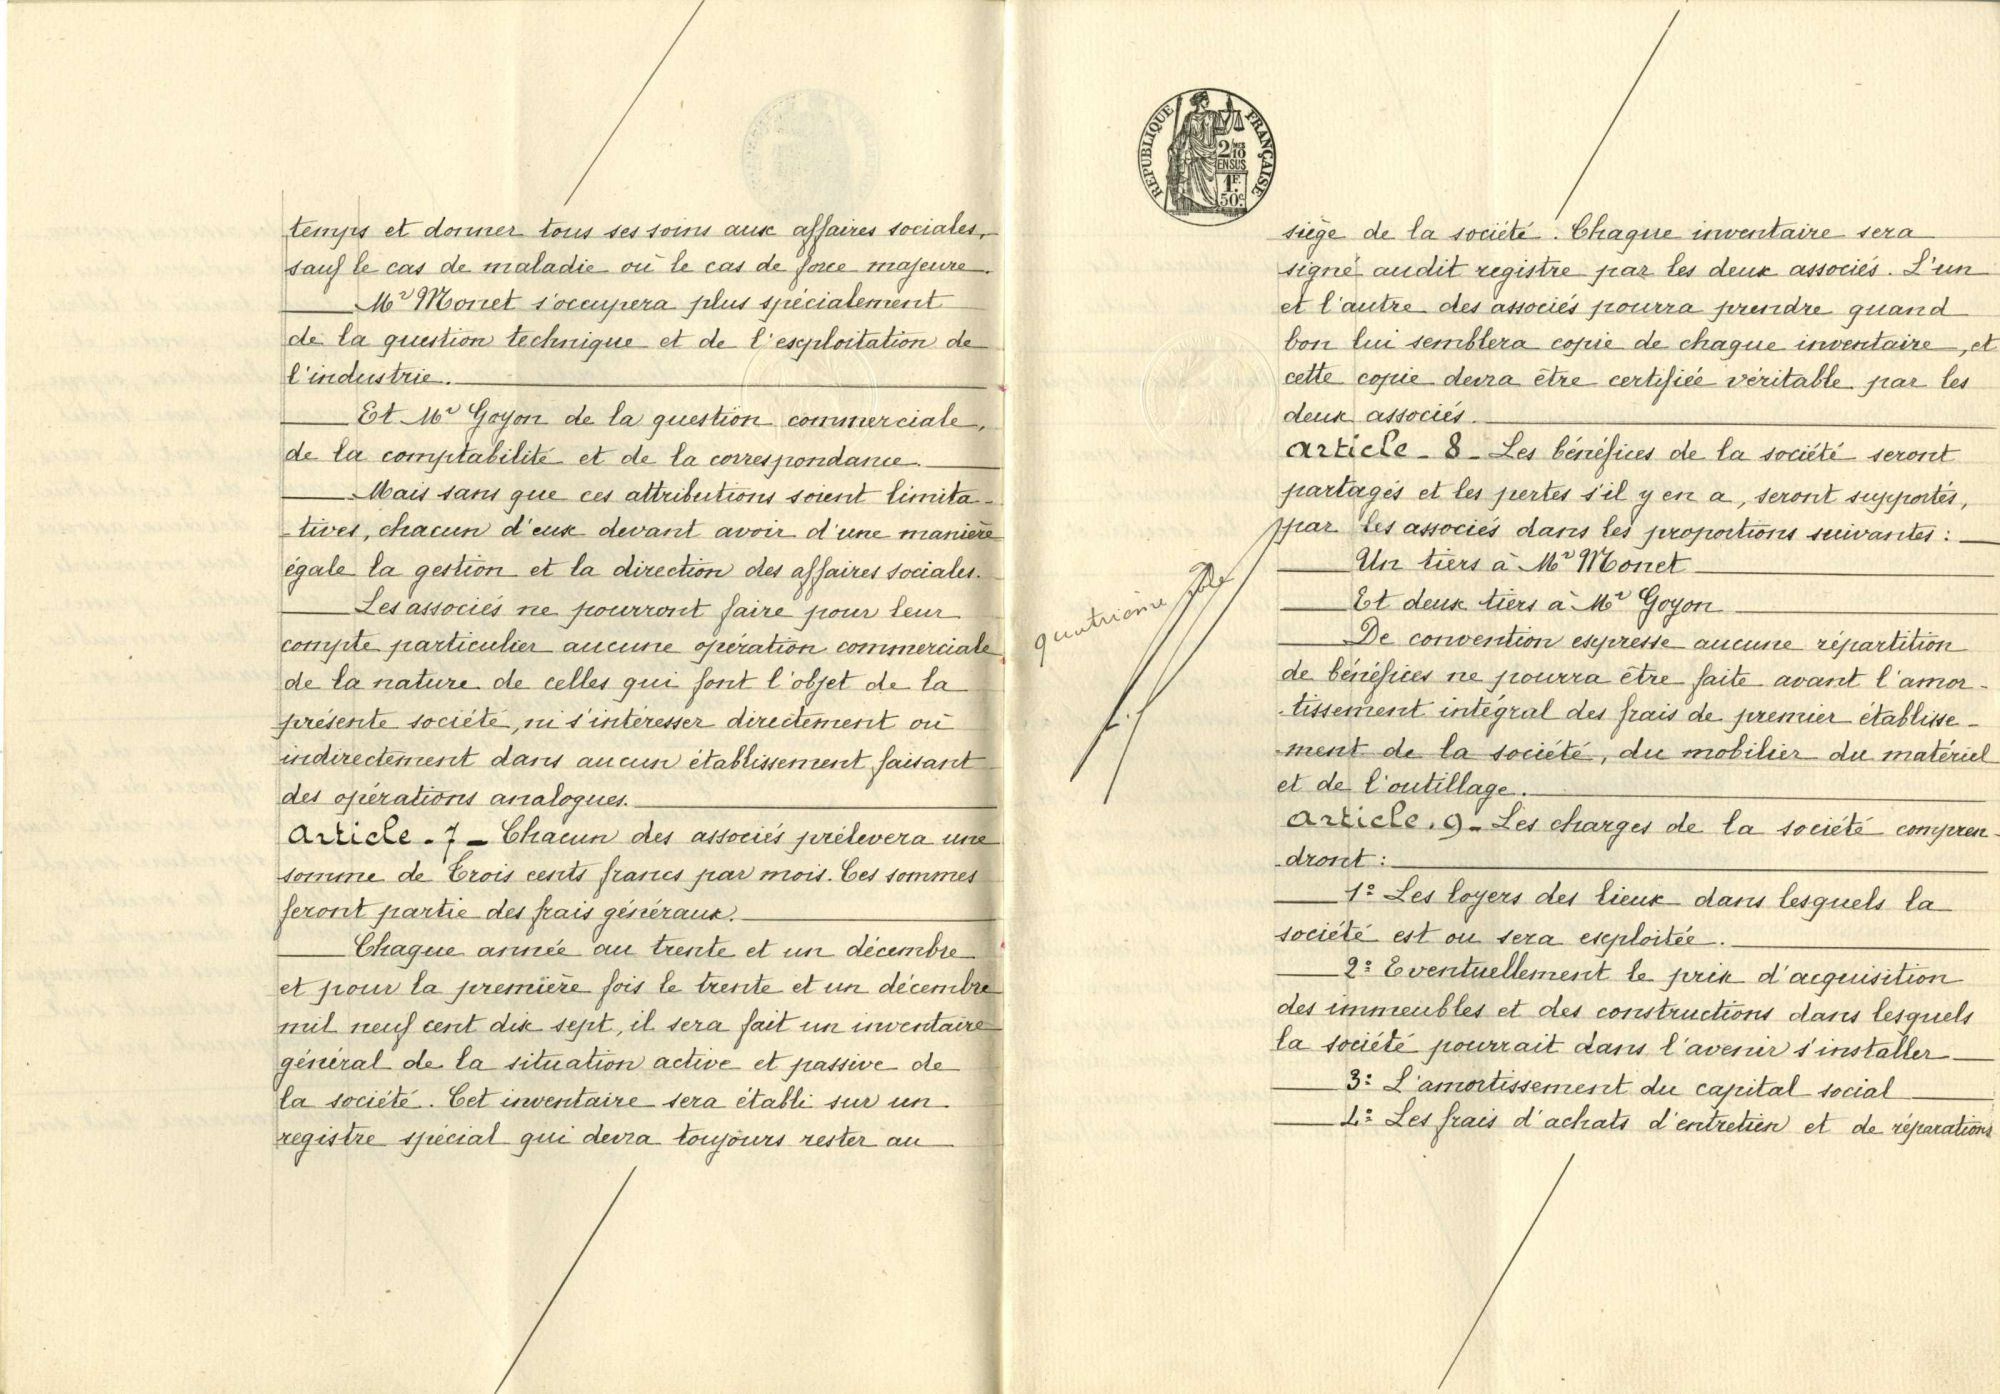 temps et donner tous ses soins aux affaires sociales,
sauf le cas de maladie où le cas de force majeure.
Mr Monet s'occupera plus spécialement
de la question technique et de l'exploitation de
l'industrie.
Et Mr Goyon de la question commerciale,
de la comptabilité et de la correspondance.
Mais sans que ces attributions soient limita-
-tives, chacun d'eux devant avoir d'une manière
égale la gestion et la direction des affaires sociales.
Les associés ne pourront faire pour leur
compte particulier aucune opération commerciale
de la nature de celles qui font l'objet de la
présente société, ni s'intéresser directement où
indirectement dans aucun établissement faisant
des opérations analogues.
Article - 7 - Chacun des associés prélevera une
somme de Trois cents francs par mois. Ces sommes
feront partie des frais généraux.
Chaque année au trente et un décembre
et pour la première fois le trente et un décembre
mil neuf cent dix sept, il sera fait un inventaire
général de la situation active et passive de
la société. Cet inventaire sera établi sur un
registre spécial qui devra toujours rester au
RÉPUBLIQUE FRANÇAISE
2/10
EN SUS
1F.
50c
siège de la société. Chaque inventaire sera
signé audit registre par les deux associés. L'un
et l'autre des associés pourra prendre quand
bon lui semblera copie de chaque inventaire, et
cette copie devra être certifiée véritable par les
deux associés.
Article - 8 - Les bénéfices de la société seront
partagés et les pertes s'il y en a, seront supportés,
par les associés dans les proportions suivantes :
Un tiers à Mr Monet
Et deux tiers à Mr Goyon
De convention expresse aucune répartition
de bénéfices ne pourra être faite avant l'amor-
-tissement intégral des frais de premier établisse-
-ment de la société, du mobilier du matériel
et de l'outillage.
Article. 9 - Les charges de la société compren-
-dront :
1º Les loyers des lieux dans lesquels la
société est ou sera exploitée.
2º Eventuellement le prix d'acquisition
des immeubles et des constructions dans lesquels
la société pourrait dans l'avenir s'installer
3º L'amortissement du capital social
4º Les frais d'achats d'entretien et de réparations
quatrième